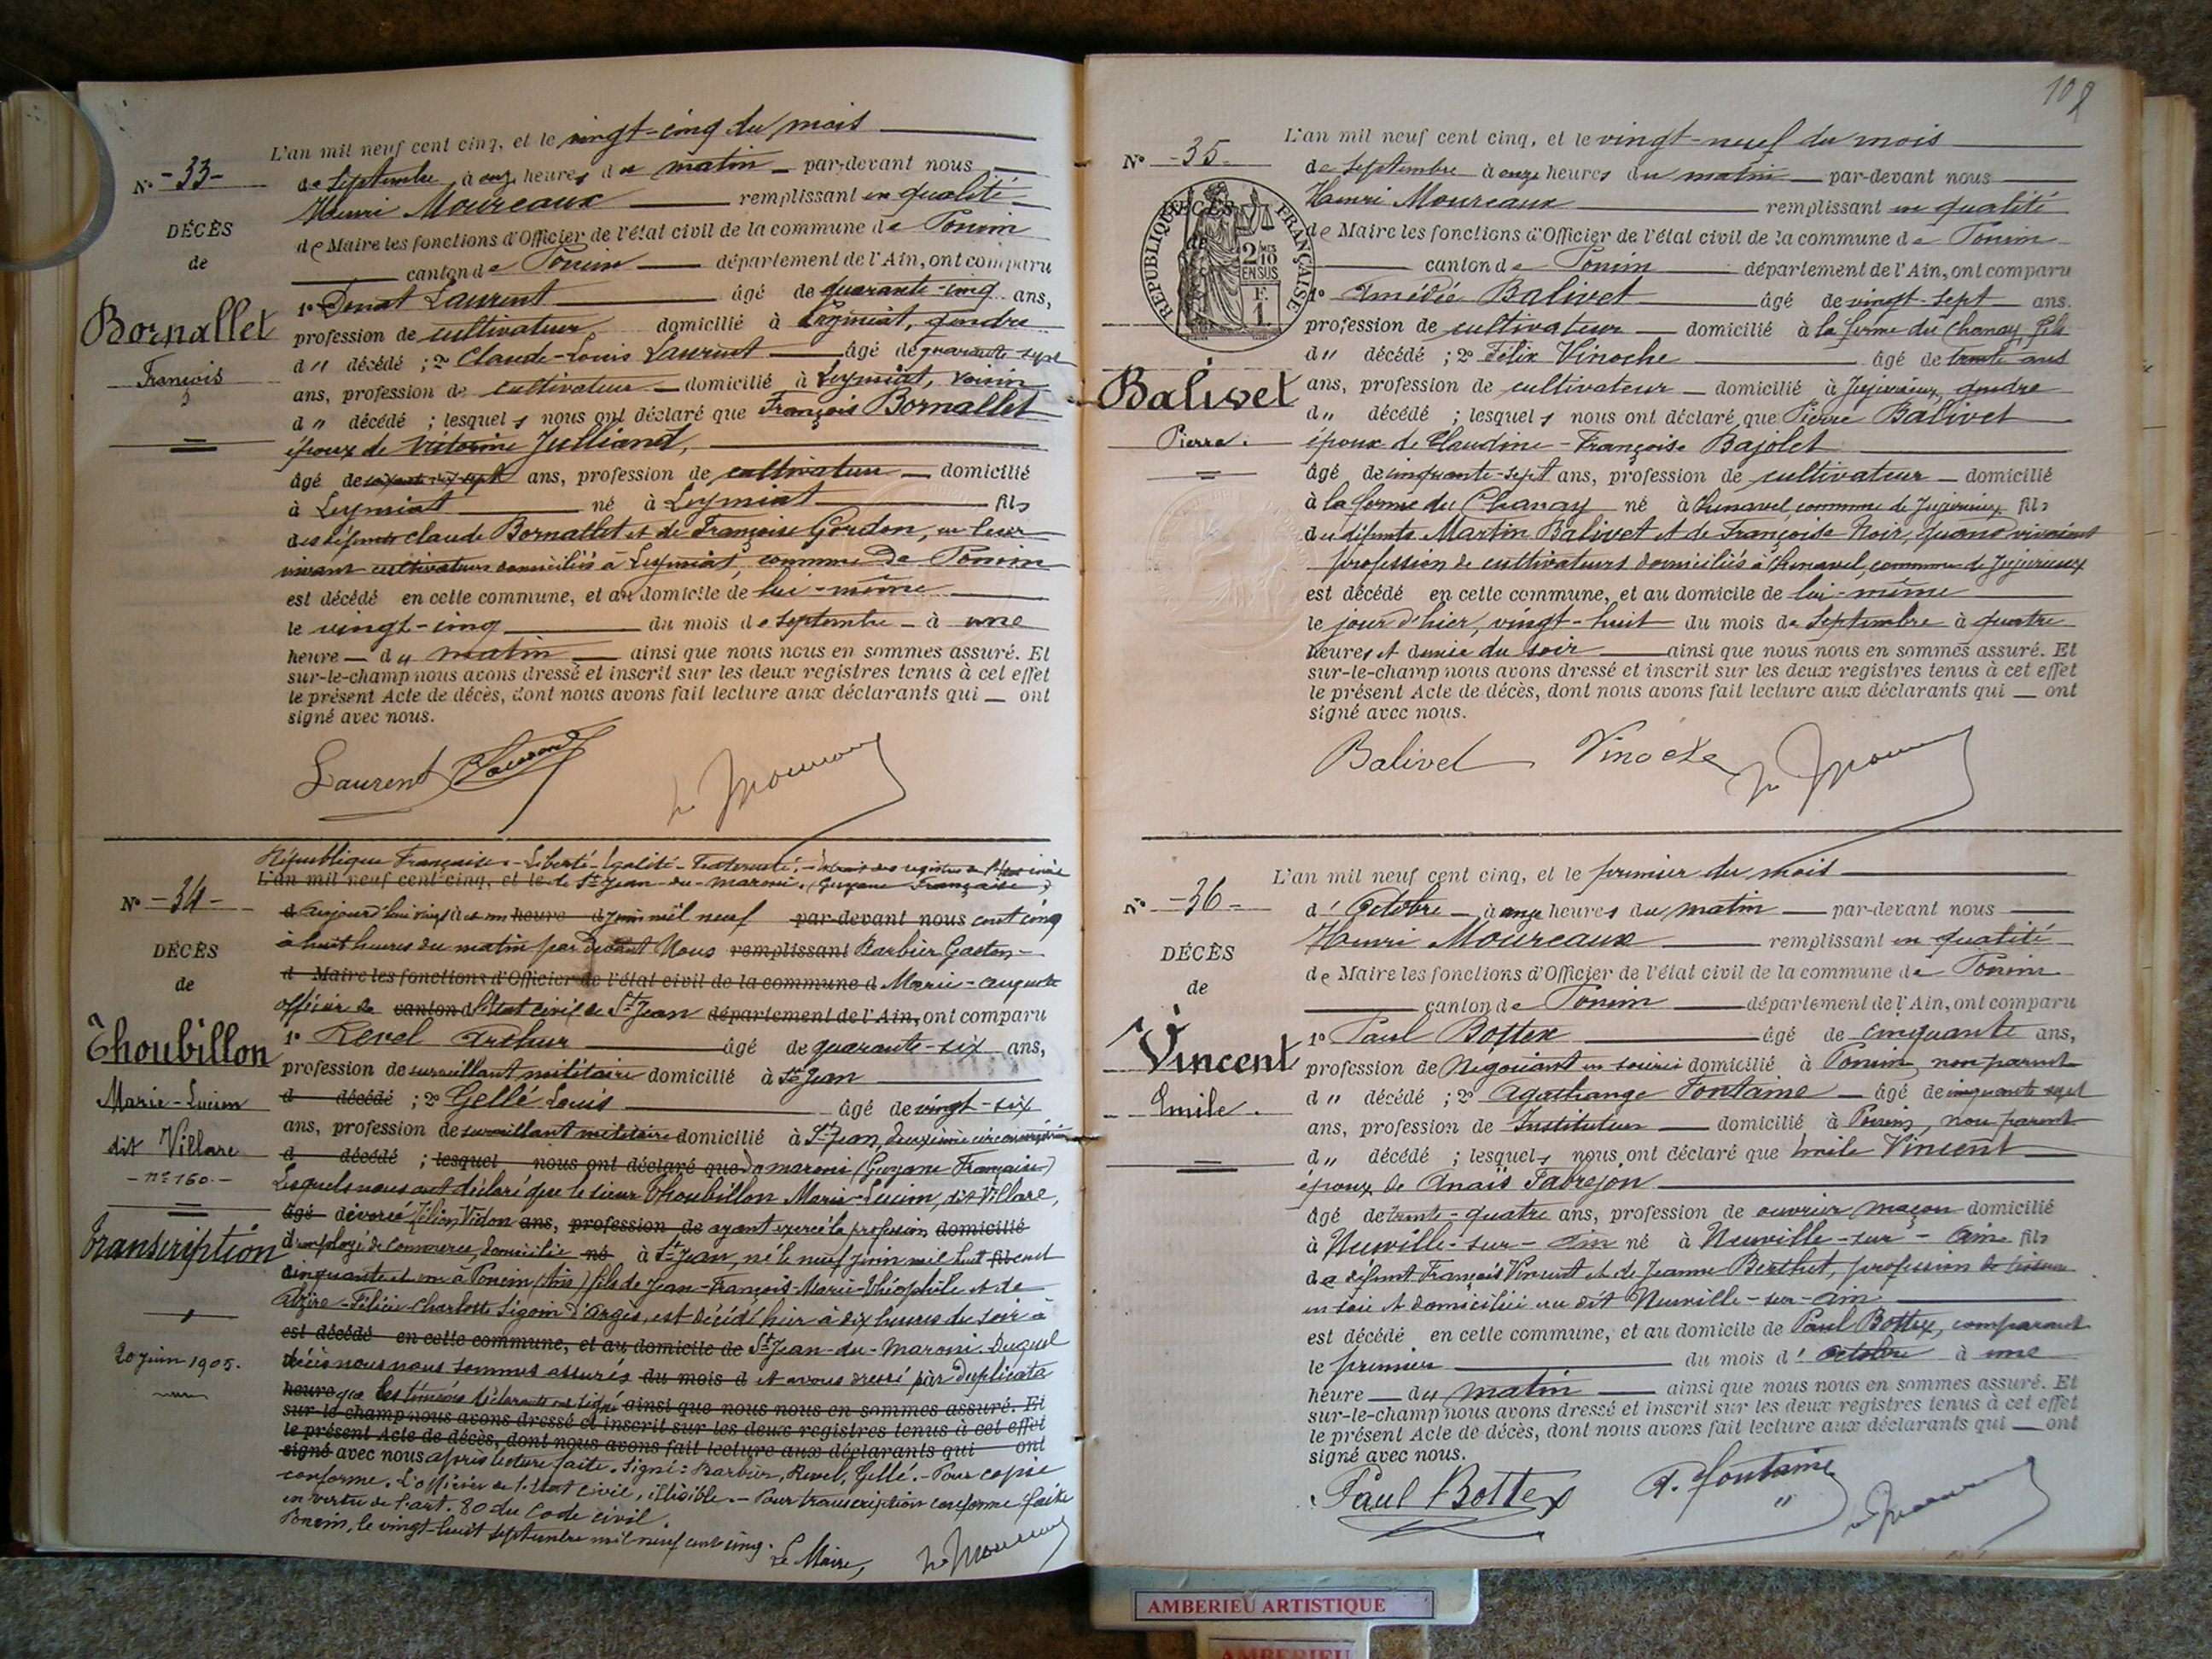 L'an mil neuf cent cinq, et le vingt-cinq du mois
N° -33-
de Septembre, à onze heures du matin par-devant nous
Henri Moureaux remplissant en qualité
DÉCÈS
de Maire les fonctions d'Officier de l'état civil de la commune de Poncin
de
canton de Poncin département de l'Ain, ont comparu
1° Donat Laurent âgé de quarante-cinq ans,
Bornallet
profession de cultivateur, domicilié à Leymiat, gendre
François
du décédé ; 2° Claude-Louis Laurent âgé de quarante-sept
ans, profession de cultivateur domicilié à Leymiat, voisin
du décédé ; lesquels nous ont déclaré que François Bornallet
époux de Victorine Julliand,
âgé de ans, profession de cultivateur domicilié
à Leymiat né à Leymiat fils
des défunts Claude Bornallet et de Françoise Gordon, en leur
vivant cultivateurs domiciliés à Leymiat, commune de Poncin
est décédé en cette commune, et au domicile de lui-même
le vingt-cinq du mois de septembre à une
heure du matin ainsi que nous nous en sommes assuré. Et
sur-le-champ nous avons dressé et inscrit sur les deux registres tenus à cet effet
le présent Acte de décès, dont nous avons fait lecture aux déclarants qui ont
signé avec nous.
Laurent
République Française. - Liberté - Egalité - Fraternité. - Extrait des registres de l'Etat civil
L'an mil neuf cent cinq, et le de St Jean-du-Maroni. (Guyane Française)
N° -34-
d aujourd'hui vingt et un heure d juin mil neuf par-devant nous cent cinq
à huit heures du matin par devant Nous remplissant Barbier Gaston-
DÉCÈS
d Maire les fonctions d'Officier de l'état civil de la commune d Marie-Auguste
de
officier de canton d l'Etat civil de St Jean département de l'Ain, ont comparu
1° Revel Arthur âgé de quarante-six ans,
Thoubillon
profession de surveillant militaire domicilié à St Jean
Marie-Lucien
d décédé ; 2° Gellé Louis âgé de vingt-six
ans, profession de surveillant militaire domicilié à St Jean, deuxième circonscription
dit Villare
d décédé ; lesquel nous ont déclaré que du Maroni (Guyane Française)
- n° 160. -
Lesquels nous ont déclaré que le sieur Thoubillon Marie-Lucien, dit Villare,
âgé divorcé Vidon ans, profession de ayant exercé la profession domicilié
Transcription
d'employé de commerce, domicilié né à St Jean, né le neuf juin mil huit fils cent
cinquante et un à Poncin (Ain) fils de Jean-François-Marie-Théophile et de
Alzire-Félicie-Charlotte Sigoin d'Arges, est décédé hier à dix heures du soir à
est décédé en cette commune, et au domicile de St Jean-du-Maroni. Duquel
20 juin 1905.
décès nous nous sommes assurés du mois d et avons dressé par duplicata
heure que les témoins déclarants ont signé ainsi que nous nous en sommes assuré. Et
sur-le-champ nous avons dressé et inscrit sur les deux registres tenus à cet effet
le présent Acte de décès, dont nous avons fait lecture aux déclarants qui ont
signé avec nous après lecture faite. Signé : Barbier, Revel, Gellé. - Pour copie
conforme. L'officier de l'état civil, illisible. - Pour transcription conforme faite
en vertu de l'art. 80 du Code civil.
Poncin, le vingt-huit septembre mil neuf cent cinq.
Le Maire,
108
L'an mil neuf cent cinq, et le vingt-neuf du mois
N° -35-
de Septembre à onze heures du matin par-devant nous
Henri Moureaux remplissant en qualité
RÉPUBLIQUE FRANÇAISE
DÉCÈS
de
2/10 EN SUS
F. 1
de Maire les fonctions d'Officier de l'état civil de la commune de Poncin
canton de Poncin département de l'Ain, ont comparu
1° Amédée Balivet âgé de vingt-sept ans.
profession de cultivateur domicilié à la ferme du Chanay, fils
du décédé ; 2° Félix Vinoche âgé de trente ans
Balivet
ans, profession de cultivateur domicilié à Jujurieux, gendre
du décédé ; lesquels nous ont déclaré que Pierre Balivet
Pierre.
époux de Claudine-Françoise Bajolet
âgé de cinquante-sept ans, profession de cultivateur domicilié
à la ferme du Chanay né à Chenavel, commune de Jujurieux fils
de défunts Martin Balivet et de Françoise Noir, quand vivaient
profession de cultivateurs domiciliés à Chenavel, commune de Jujurieux
est décédé en cette commune, et au domicile de lui-même
le jour d'hier, vingt-huit du mois de Septembre à quatre
heures et demie du soir ainsi que nous nous en sommes assuré. Et
sur-le-champ nous avons dressé et inscrit sur les deux registres tenus à cet effet
le présent Acte de décès, dont nous avons fait lecture aux déclarants qui ont
signé avec nous.
Balivet Vinoche
L'an mil neuf cent cinq, et le premier du mois
N° -36-
d'Octobre à onze heures du matin par-devant nous
Henri Moureaux remplissant en qualité
DÉCÈS
de Maire les fonctions d'Officier de l'état civil de la commune de Poncin
de
canton de Poncin département de l'Ain, ont comparu
1° Paul Bottex âgé de cinquante ans,
Vincent
profession de Négociant en soieries domicilié à Poncin, non parent
Emile.
du décédé ; 2° Agathange Fontaine âgé de cinquante sept
ans, profession de Instituteur domicilié à Poncin, non parent
du décédé ; lesquels nous ont déclaré que Emile Vincent
époux de Anaïs Fabrejon
âgé de trente-quatre ans, profession de ouvrier maçon domicilié
à Neuville-sur-Ain né à Neuville-sur-Ain fils
de défunt François Vincent et de Jeanne Berthet, profession de
en soie et domiciliée au dit Neuville-sur-Ain
est décédé en cette commune, et au domicile de Paul Bottex, comparant
le premier du mois d'octobre à une
heure du matin ainsi que nous nous en sommes assuré. Et
sur-le-champ nous avons dressé et inscrit sur les deux registres tenus à cet effet
le présent Acte de décès, dont nous avons fait lecture aux déclarants qui ont
signé avec nous.
Paul Bottex A. Fontaine
AMBERIEU ARTISTIQUE
AMBERIEU